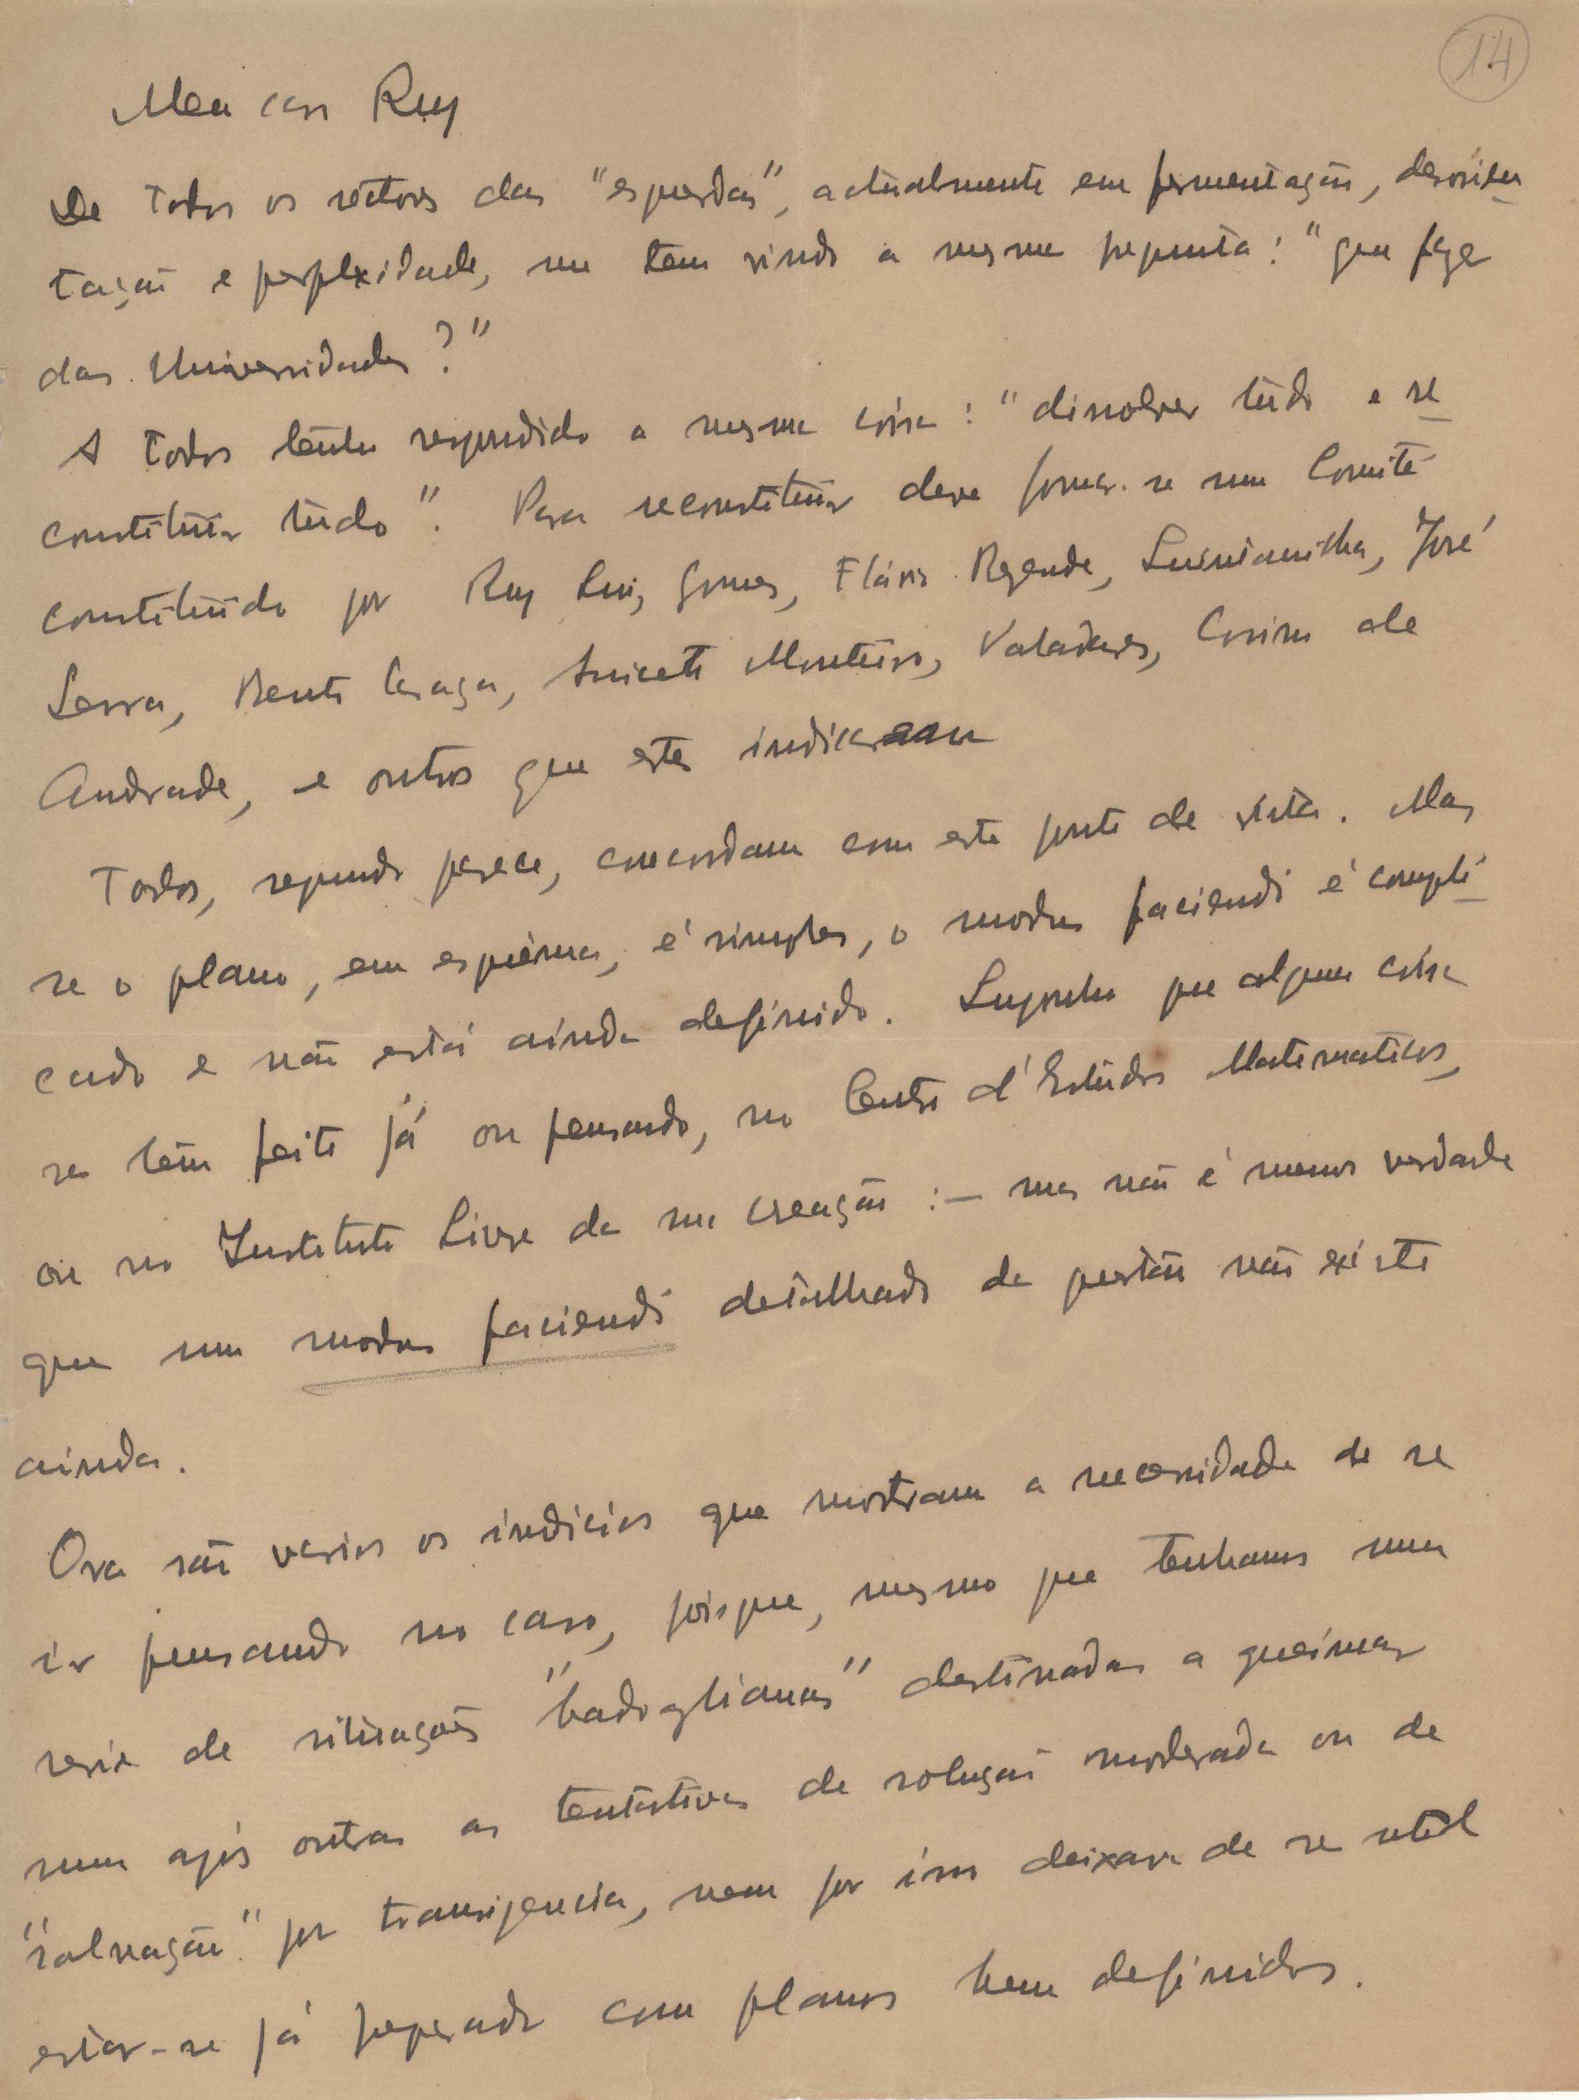 14
Meu caro Ruy
De todos os sectores das "esquerdas", actualmente em fermentação, desorien-
tação e perplexidade, me tem vindo a mesma pergunta: "que fazer
das Universidades?"
A todos tenho respondido a mesma coisa: "dissolver tudo e re-
constituir tudo". Para reconstituir deve formar-se um Comité
constituido por Ruy Luiz Gomes, Flávio Rezende, José
Serra, Bento Caraça, Aniceto Monteiro, Valadares, Corino de
Andrade, e outros que estes indicaram
Todos, segundo parece, concordam com este ponto de vista. Mas
se o plano, em esquema, é simples, o modus faciendi é compli-
cado e não está ainda definido. Suponho que alguma coisa
se tem feito já ou pensado, no Centro d'Estudos Matematicos,
ou no Instituto Livre da sua creação: — mas não é menos verdade
que um modus faciendi detalhado da questão não existe
ainda.
Ora são varios os indicios que mostram a necessidade de se
ir pensando no caso, porque, mesmo que tenhamos uma
serie de situações "badoglianas" destinadas a queimar
umas após outras as tentativas de solução moderada ou de
"salvação" por transigencia, nem por isso deixara de se util
estar-se já preparado com planos bem definidos.